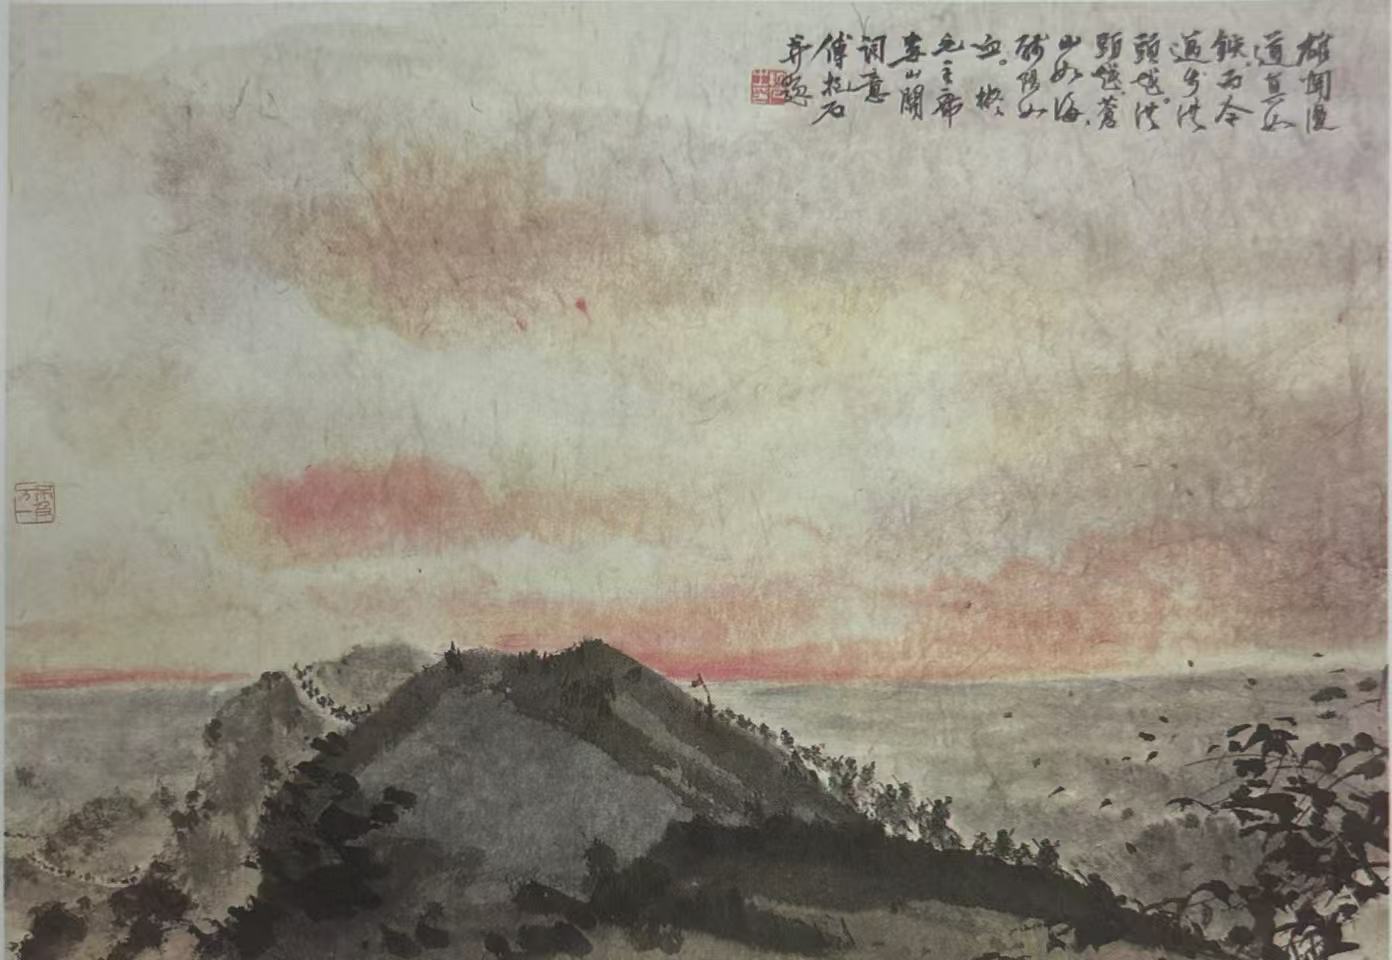 雄關漫
道真如
鐵。而今
邁步从
頭越。从
頭越。蒼
山如海，
殘陽如
血。
毛主席
婁山關
詞意
傅抱石
并題
不及万一